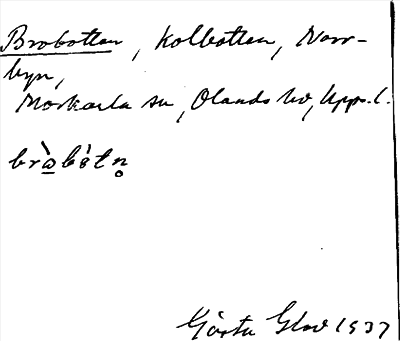 Brobotten, Kolbotten, Norr-
byn,
Morkarla sn, Olands hd, Upps. l.
bròbòtn̥
Gösta Glad 1937